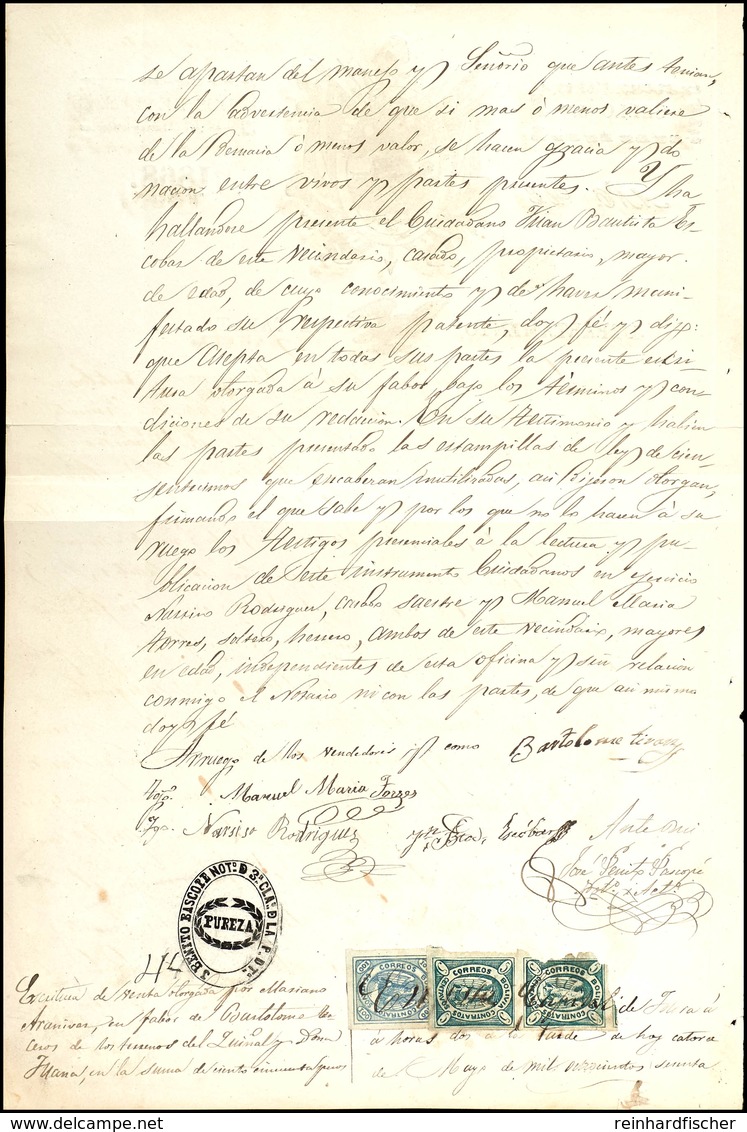 se apartan del manejo y Señorio que antes tenian,
con la advertencia de que si mas ó menos valiere
de la Demacia ó menos valor, se hacen gracia y do
nacion entre vivos y partes presentes. Y ha
hallandose presente el Ciudadano Juan Bautista Es-
cobar de este vecindario, casado, propietario, mayor
de edad, de cuyo conocimiento y de haver mani-
festado su respectiva patente, doy fé y dijo:
que asepta en todas sus partes la presente escri-
tura otorgada á su fabor, bajo los términos y con-
diciones de su redaccion. En su testimonio y habien
las partes presentado las estampillas de ley de cien-
sentecimos que encaberan inutilizadas, asi Dijeron otorgan,
firmando el que sabe y por los que no lo hacen á su
ruego los testigos presenciales á la lectura y pu-
blicacion de este instrumento Ciudadanos en ejercicio
Narsiso Rodriguez, casado saestre y Manuel Maria
torres, soltero, herrero, ambos de este vecindario, mayores
en edad, independientes de esta oficina y sin relacion
conmigo el Notario ni con las partes, de que asi mismo
doy fé
Arruego de los vendedores y como Bartolome
Tgo. Manuel Maria Torres
Tgo. Narsiso Rodriguez Escobar Ante mi
José Benito Bascopé
J. BENITO BASCOPE NOTº D 3ª CLA. D LA P. D Tª
PUREZA
44
CORREOS
CONTRATOS
CORREOS
CONTRATOS
CORREOS
CONTRATOS
Escritura de venta otorgada por Mariano
Aranivar, en fabor de Bartolome
de los terrenos del y Doña
Juana, en la suma de ciento cincuenta pesos
de Tiura á
á horas dos de la tarde de hoy catorce
de Mayo de mil ochocientos sesenta
reinhardfischer